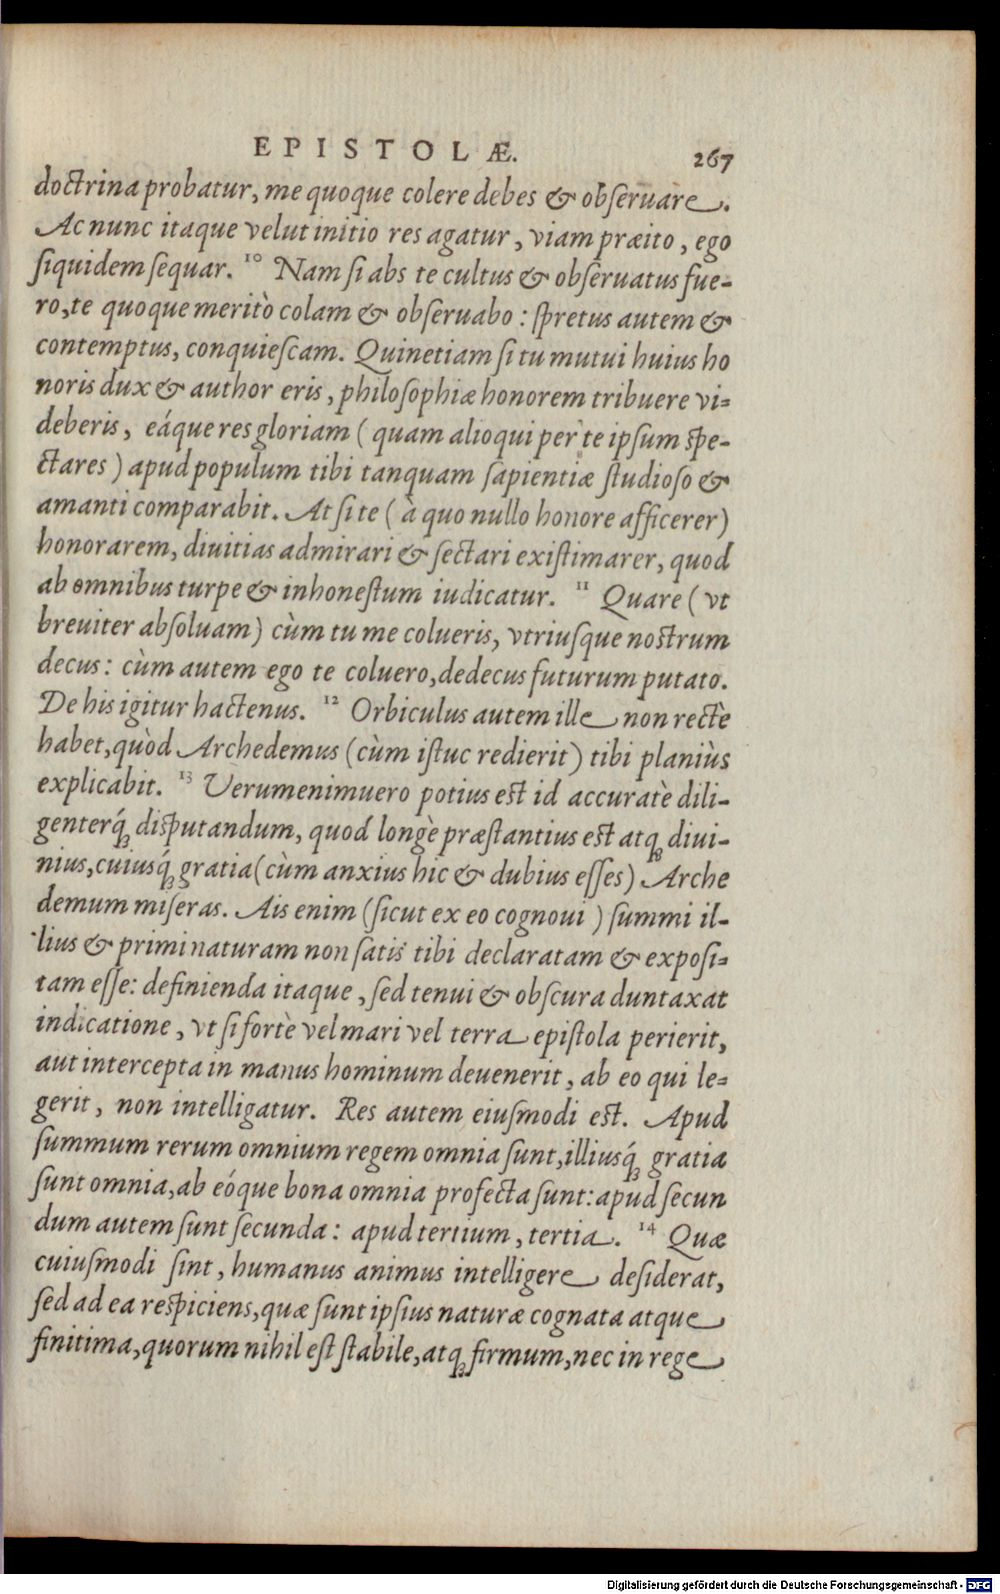 EPISTOLÆ. 267
doctrina probatur, me quoque colere debes & obseruare.
Ac nunc itaque velut initio res agatur, viam præito, ego
siquidem sequar. 10 Nam si abs te cultus & obseruatus fue-
ro, te quoque meritò colam & obseruabo: spretus autem &
contemptus, conquiescam. Quinetiam si tu mutui huius ho
noris dux & author eris, philosophiæ honorem tribuere vi-
deberis, eáque res gloriam (quam alioqui per te ipsum spe-
ctares) apud populum tibi tanquam sapientiæ studioso &
amanti comparabit. At si te (à quo nullo honore afficerer)
honorarem, diuitias admirari & sectari existimarer, quod
ab omnibus turpe & inhonestum iudicatur. 11 Quare (vt
breuiter absoluam) cùm tu me colueris, vtriusque nostrum
decus: cùm autem ego te coluero, dedecus futurum putato.
De his igitur hactenus. 12 Orbiculus autem ille non rectè
habet, quòd Archedemus (cùm istuc redierit) tibi planiùs
explicabit. 13 Verumenimuero potius est id accuratè dili-
genterq́ꝫ disputandum, quod longè præstantius est atqꝫ diui-
nius, cuiusq́ꝫ gratia (cùm anxius hic & dubius esses) Arche
demum miseras. Ais enim (sicut ex eo cognoui) summi il-
lius & primi naturam non satis tibi declaratam & exposi-
tam esse: definienda itaque, sed tenui & obscura duntaxat
indicatione, vt si fortè vel mari vel terra epistola perierit,
aut intercepta in manus hominum deuenerit, ab eo qui le-
gerit, non intelligatur. Res autem eiusmodi est. Apud
summum rerum omnium regem omnia sunt, illiusq́ꝫ gratia
sunt omnia, ab eóque bona omnia profecta sunt: apud secun
dum autem sunt secunda: apud tertium, tertia. 14 Quæ
cuiusmodi sint, humanus animus intelligere desiderat,
sed ad ea respiciens, quæ sunt ipsius naturæ cognata atque
finitima, quorum nihil est stabile, atqꝫ firmum, nec in rege
Digitalisierung gefördert durch die Deutsche Forschungsgemeinschaft - DFG